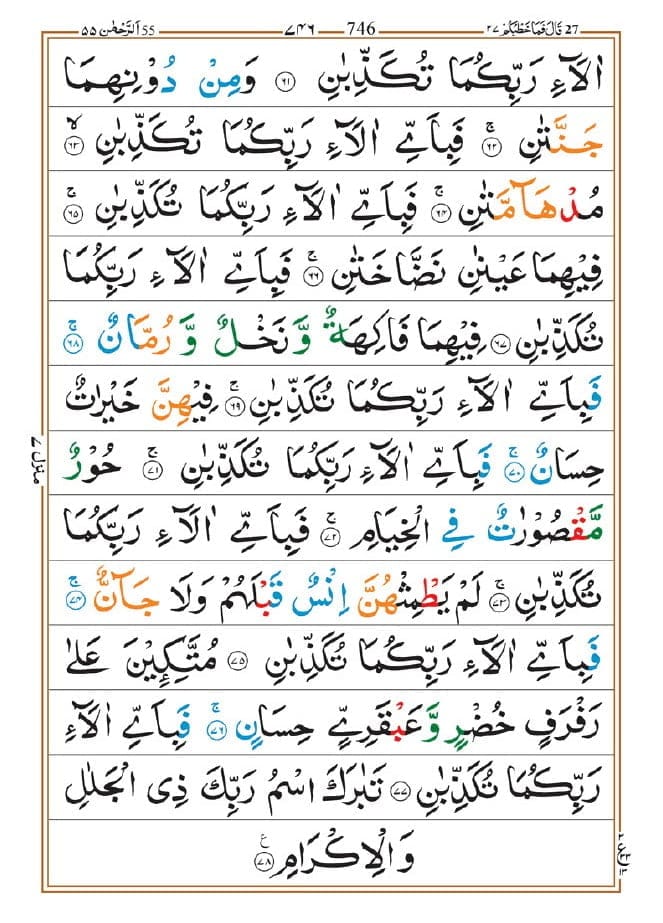 55 اَلرَّحْمٰن ٥٥ 746 ٧٤٦ 27 قَالَ فَمَا خَطْبُكُمْ ٢٧
اٰلَآءِ رَبِّكُمَا تُكَذِّبٰنِ ﴿٦١﴾ وَمِنْ دُوْنِهِمَا
جَنَّتٰنِ ۚ﴿٦٢﴾ فَبِاَيِّ اٰلَآءِ رَبِّكُمَا تُكَذِّبٰنِ ۙ﴿٦٣﴾
مُدْهَآمَّتٰنِ ۚ﴿٦٤﴾ فَبِاَيِّ اٰلَآءِ رَبِّكُمَا تُكَذِّبٰنِ ۚ﴿٦٥﴾
فِيْهِمَا عَيْنٰنِ نَضَّاخَتٰنِ ۚ﴿٦٦﴾ فَبِاَيِّ اٰلَآءِ رَبِّكُمَا
تُكَذِّبٰنِ ﴿٦٧﴾ فِيْهِمَا فَاكِهَةٌ وَّ نَخْلٌ وَّ رُمَّانٌ ۚ﴿٦٨﴾
فَبِاَيِّ اٰلَآءِ رَبِّكُمَا تُكَذِّبٰنِ ۚ﴿٦٩﴾ فِيْهِنَّ خَيْرٰتٌ
حِسَانٌ ۚ﴿٧٠﴾ فَبِاَيِّ اٰلَآءِ رَبِّكُمَا تُكَذِّبٰنِ ۚ﴿٧١﴾ حُوْرٌ
مَّقْصُوْرٰتٌ فِي الْخِيَامِ ۚ﴿٧٢﴾ فَبِاَيِّ اٰلَآءِ رَبِّكُمَا
تُكَذِّبٰنِ ۚ﴿٧٣﴾ لَمْ يَطْمِثْهُنَّ اِنْسٌ قَبْلَهُمْ وَلَا جَآنٌّ ۚ﴿٧٤﴾
فَبِاَيِّ اٰلَآءِ رَبِّكُمَا تُكَذِّبٰنِ ﴿٧٥﴾ مُتَّكِـِٕيْنَ عَلٰى
رَفْرَفٍ خُضْرٍ وَّ عَبْقَرِيٍّ حِسَانٍ ۚ﴿٧٦﴾ فَبِاَيِّ اٰلَآءِ
رَبِّكُمَا تُكَذِّبٰنِ ﴿٧٧﴾ تَبٰرَكَ اسْمُ رَبِّكَ ذِي الْجَلٰلِ
وَالْاِكْرَامِ ﴿٧٨﴾ ع
منزل ٧